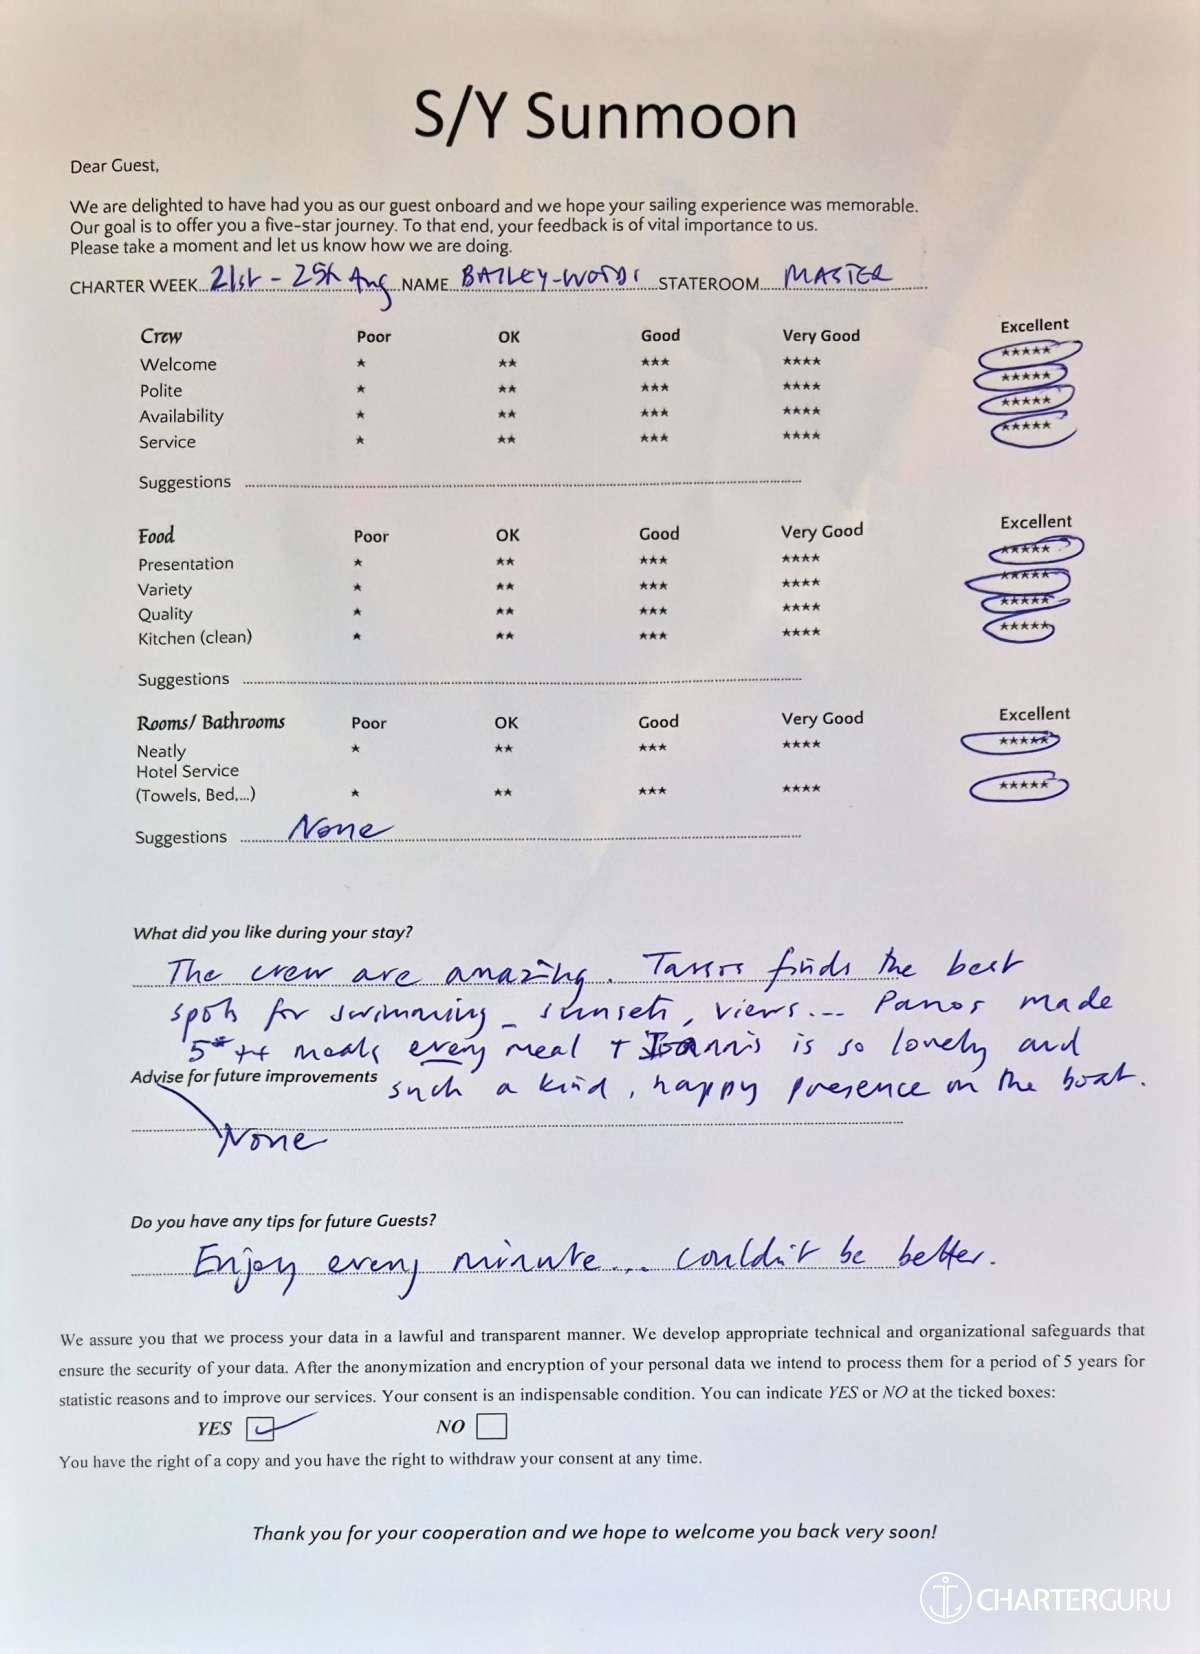 S/Y Sunmoon
Dear Guest,
We are delighted to have had you as our guest onboard and we hope your sailing experience was memorable.
Our goal is to offer you a five-star journey. To that end, your feedback is of vital importance to us.
Please take a moment and let us know how we are doing.
CHARTER WEEK 21st - 25th Aug NAME BAILEY-WOODS STATEROOM MASTER
Crew Poor OK Good Very Good Excellent
Welcome ★ ★★ ★★★ ★★★★ ★★★★★
Polite ★ ★★ ★★★ ★★★★ ★★★★★
Availability ★ ★★ ★★★ ★★★★ ★★★★★
Service ★ ★★ ★★★ ★★★★ ★★★★★
Suggestions
Food Poor OK Good Very Good Excellent
Presentation ★ ★★ ★★★ ★★★★ ★★★★★
Variety ★ ★★ ★★★ ★★★★ ★★★★★
Quality ★ ★★ ★★★ ★★★★ ★★★★★
Kitchen (clean) ★ ★★ ★★★ ★★★★ ★★★★★
Suggestions
Rooms/ Bathrooms Poor OK Good Very Good Excellent
Neatly ★ ★★ ★★★ ★★★★ ★★★★★
Hotel Service
(Towels, Bed,...) ★ ★★ ★★★ ★★★★ ★★★★★
Suggestions None
What did you like during your stay?
The crew are amazing. Tassos finds the best
spots for swimming - sunsets, views... Panos made
5*++ meals every meal + Ioannis is so lovely and
such a kind, happy presence on the boat.
Advise for future improvements
None
Do you have any tips for future Guests?
Enjoy every minute... couldn't be better.
We assure you that we process your data in a lawful and transparent manner. We develop appropriate technical and organizational safeguards that
ensure the security of your data. After the anonymization and encryption of your personal data we intend to process them for a period of 5 years for
statistic reasons and to improve our services. Your consent is an indispensable condition. You can indicate YES or NO at the ticked boxes:
YES NO
You have the right of a copy and you have the right to withdraw your consent at any time.
Thank you for your cooperation and we hope to welcome you back very soon!
CHARTERGURU